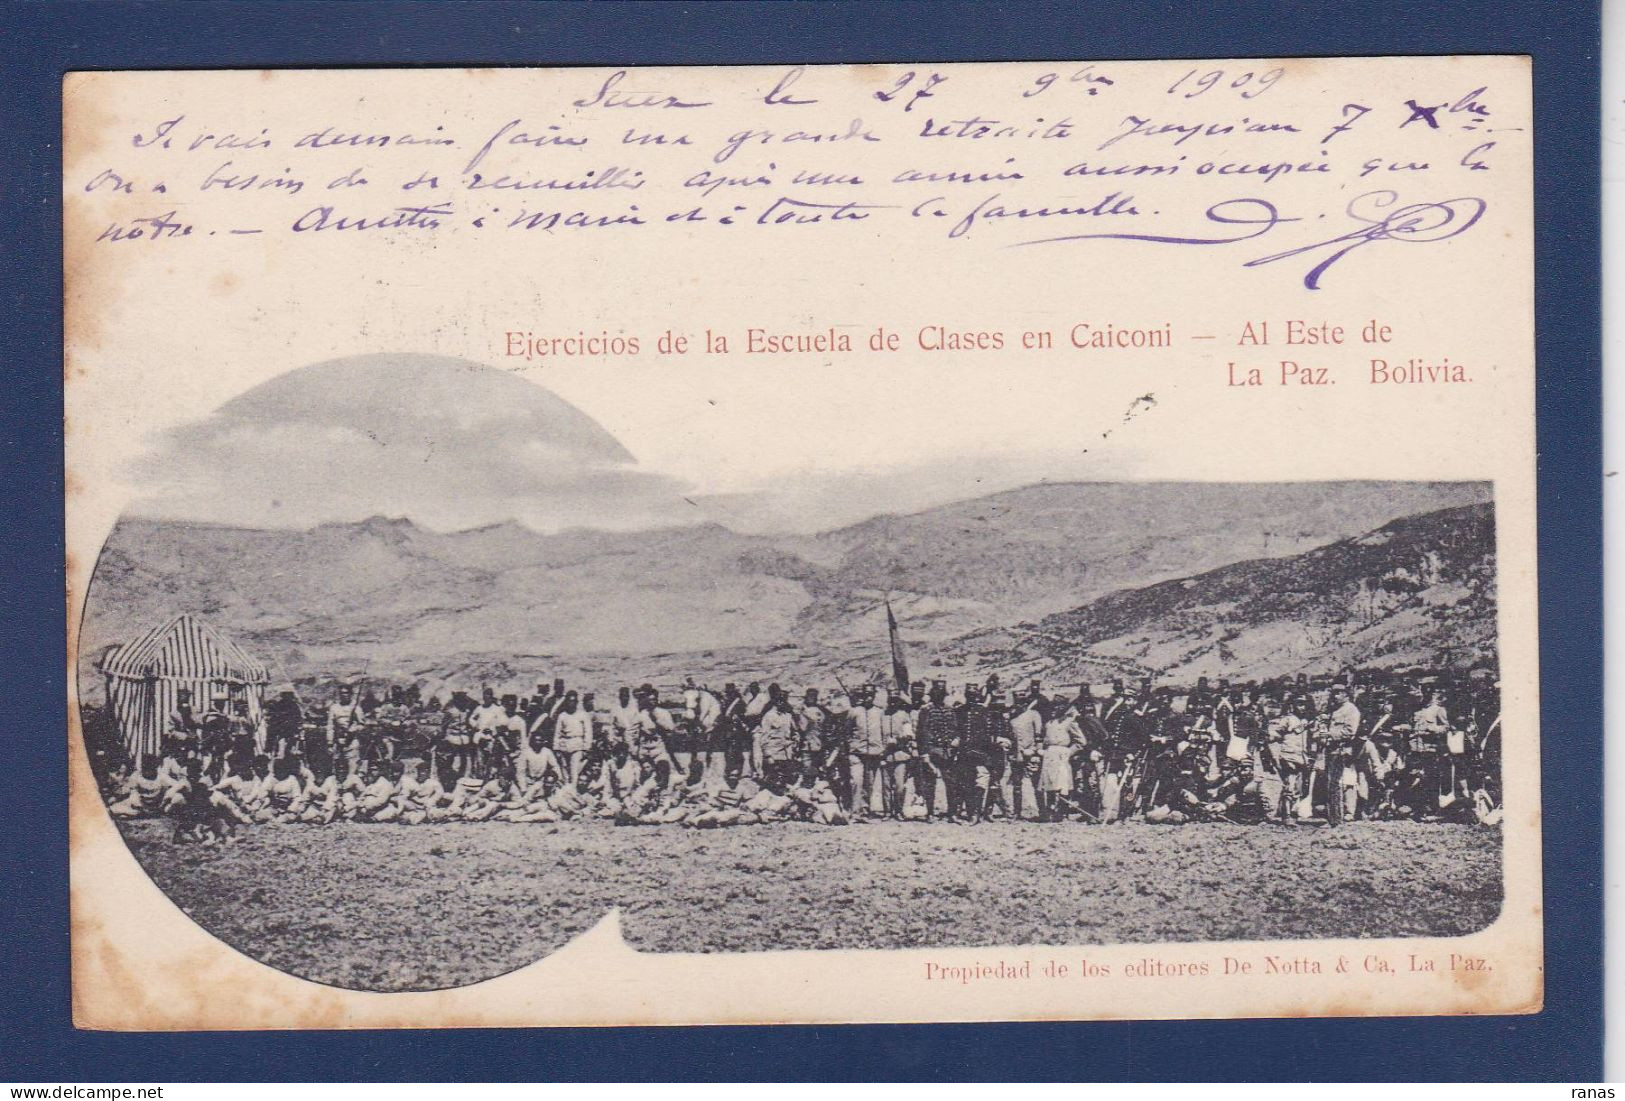 Sucre le 27 9bre 1909
Je vais demain faire ma grande retraite jusqu'au 7 Xbre.
on a besoin de se recueillir après une année aussi occupée que la
nôtre. — Amitiés à Marie et à toute la famille.
Ejercicios de la Escuela de Clases en Caiconi — Al Este de
La Paz. Bolivia.
Propiedad de los editores De Notta & Ca, La Paz.
ranas